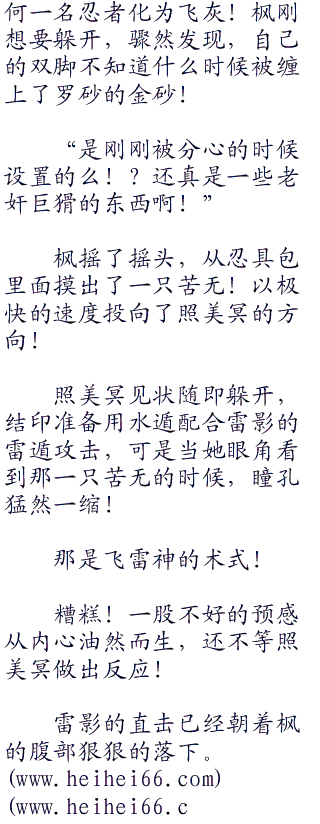 何一名忍者化为飞灰！枫刚
想要躲开，骤然发现，自己
的双脚不知道什么时候被缠
上了罗砂的金砂！
“是刚刚被分心的时候
设置的么！？还真是一些老
奸巨猾的东西啊！”
枫摇了摇头，从忍具包
里面摸出了一只苦无！以极
快的速度投向了照美冥的方
向！
照美冥见状随即躲开，
结印准备用水遁配合雷影的
雷遁攻击，可是当她眼角看
到那一只苦无的时候，瞳孔
猛然一缩！
那是飞雷神的术式！
糟糕！一股不好的预感
从内心油然而生，还不等照
美冥做出反应！
雷影的直击已经朝着枫
的腹部狠狠的落下。
(www.heihei66.com)
(www.heihei66.c